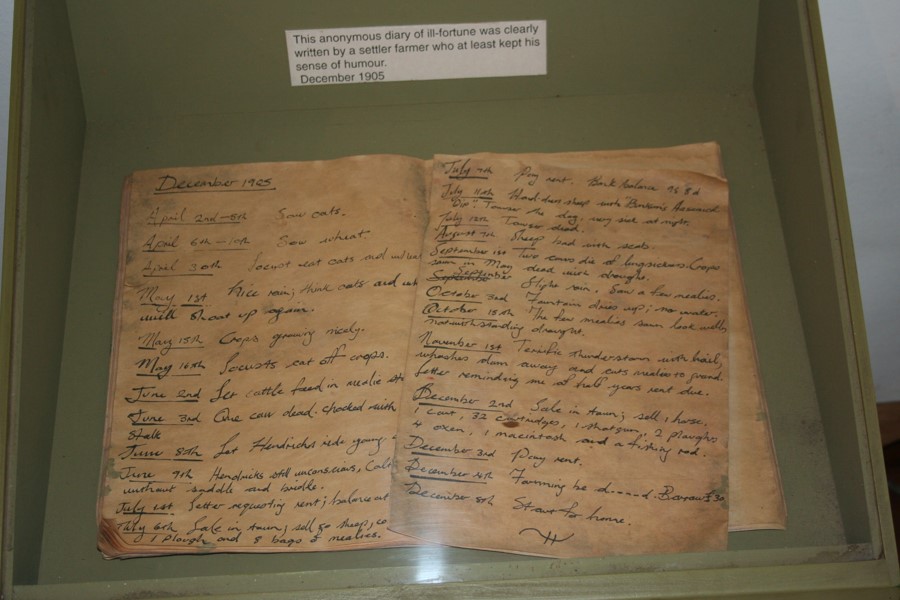 This anonymous diary of ill-fortune was clearly
written by a settler farmer who at least kept his
sense of humour.
December 1905
December 1905
April 2nd-5th Sow oats.
April 6th-10th Sow wheat.
April 30th Locust eat oats and
May 1st Nice rain; think oats and
will shoot up again.
May 15th Crops growing nicely.
May 16th Locusts eat off crops.
June 2nd Let cattle feed in mealie
June 3rd One cow dead. chocked with
Stalk
June 8th Let Hendricks ride young
June 9th Hendricks still unconscious,
without saddle and bridle.
July 1st Letter requesting rent; balance at
July 6th Sale in town; sell 50 sheep,
1 plough and 8 bags of mealies.
July 7th Pay rent. Bank balance
July Hand-dress sheep with
"Dip". Towser the dog, very sick at night.
July 12th Towser dead.
August 7th Sheep bad with scab.
September 1st Two cows die of lungsickness. Crops
sown in May dead with drought.
September Slight rain, Sow a few mealies.
October 3rd Fountain dries up; no water.
October 15th The few mealies sown look well,
notwithstanding drought.
November 1st Terrific thunderstorm with hail,
washes dam away and cuts mealies to ground.
Letter reminding me of half years rent due.
December 2nd Sale in town; sell 1 horse,
1 cart, 32 cartridges, 1 shotgun, 2 ploughs
4 oxen, 1 macintosh and a fishing rod.
December 3rd Pay rent.
December 4th Farming be d----d. Borrow
December 5th Start for home.